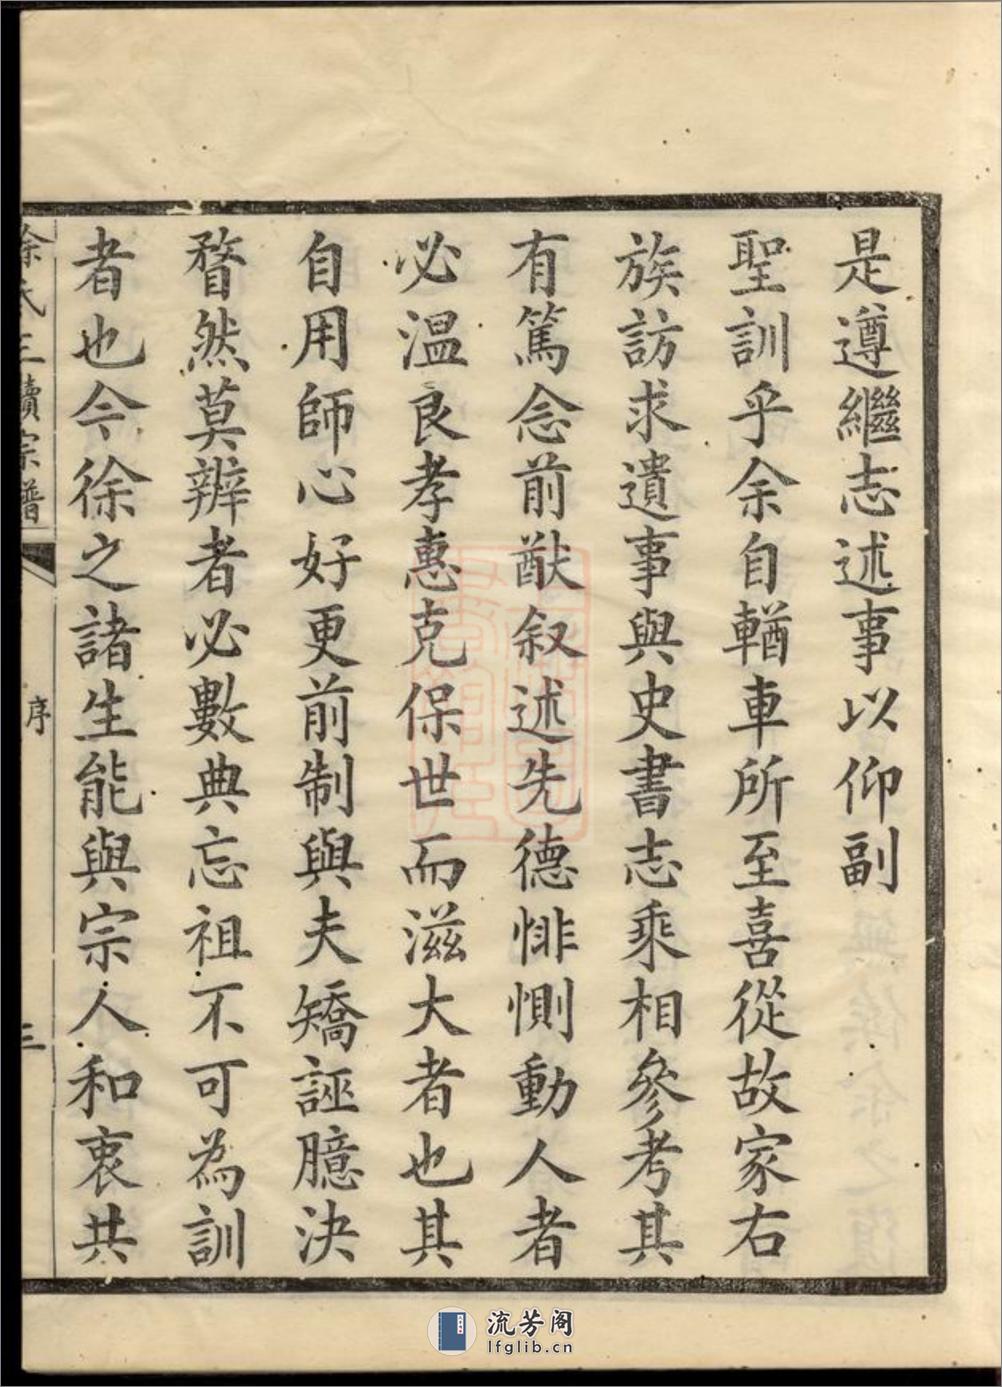 是遵繼志述事以仰副
聖訓乎余自輶車所至喜從故家右
族訪求遺事與史書志乘相參考其
有篤念前猷叙述先德悱惻動人者
必溫良孝惠克保世而滋大者也其
自用師心好更前制與夫矯誣臆決
瞀然莫辨者必數典忘祖不可為訓
者也今徐之諸生能與宗人和衷共
徐氏三續宗譜
序
三
流芳阁
lfglib.cn